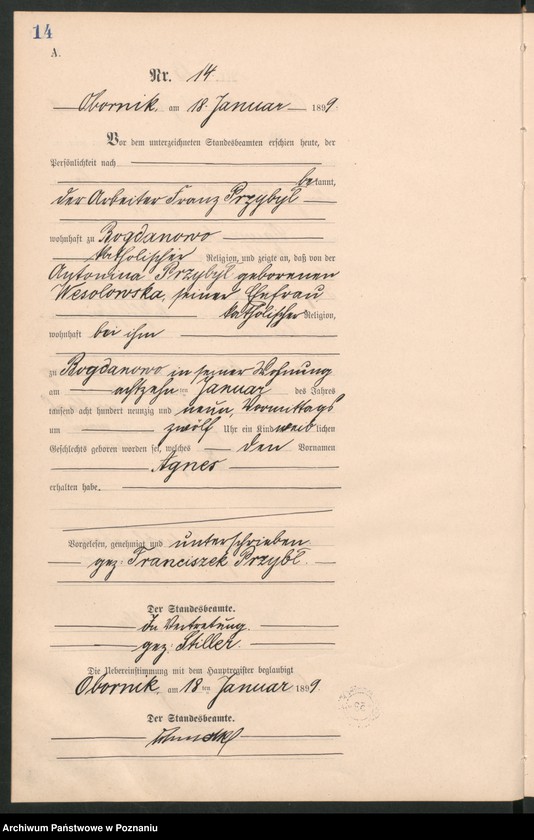 14
A.
Nr. 14
Obornik, am 18. Januar 1899.
Vor dem unterzeichneten Standesbeamten erschien heute, der
Persönlichkeit nach
bekannt,
der Arbeiter Franz Przybyl
wohnhaft zu Bogdanowo
katholischer Religion, und zeigte an, daß von der
Antonina Przybyl geborenen
Wesolowska, seiner Ehefrau
katholischer Religion,
wohnhaft bei ihm
zu Bogdanowo in seiner Wohnung
am achtzehn ten Januar des Jahres
tausend acht hundert neunzig und neun, Vormittags
um zwölf Uhr ein Kind weiblichen
Geschlechts geboren worden sei, welches den Vornamen
Agnes
erhalten habe.
Vorgelesen, genehmigt und unterschrieben
gez: Franciszek Przybl.
Der Standesbeamte.
In Vertretung.
gez: Stiller.
Die Uebereinstimmung mit dem Hauptregister beglaubigt
Obornik, am 18 ten Januar 1899.
Der Standesbeamte.
Archiwum Państwowe w Poznaniu